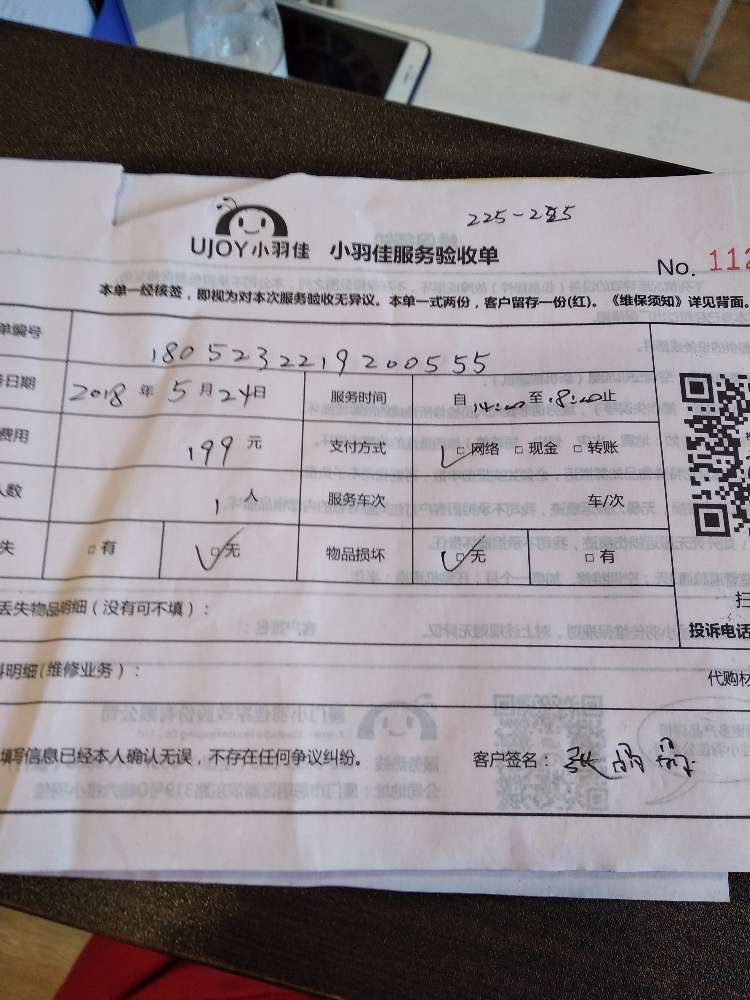 225-255
UJOY小羽佳 小羽佳服务验收单
No. 112
本单一经核签，即视为对本次服务验收无异议。本单一式两份，客户留存一份(红)。《维保须知》详见背面。
单编号 1805232219200555
务日期 2018 年 5 月 24日 服务时间 自 14:00 至 18:00 止
费用 199 元 支付方式 □网络 □现金 □转账
人数 1 人 服务车次 车/次
失 □有 □无 物品损坏 □无 □有
丢失物品明细（没有可不填）：
投诉电话
料明细(维修业务)： 代购材
填写信息已经本人确认无误，不存在任何争议纠纷。 客户签名：张